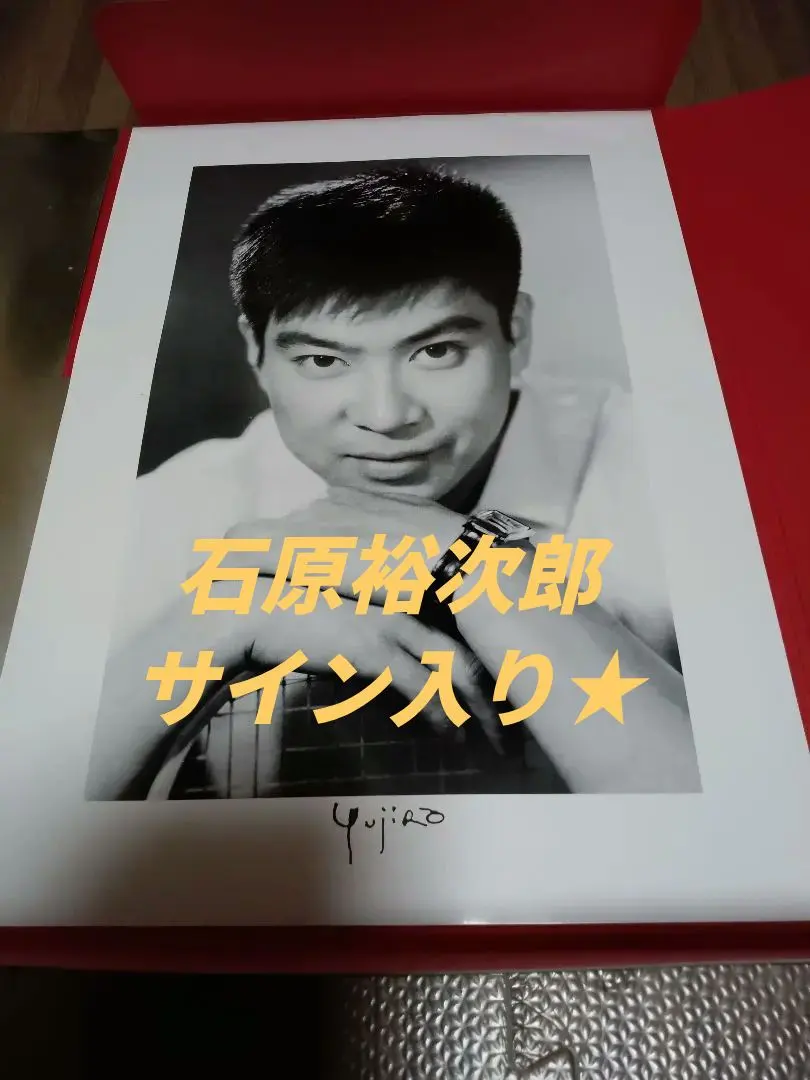 石原裕次郎
サイン入り★
Yujiro